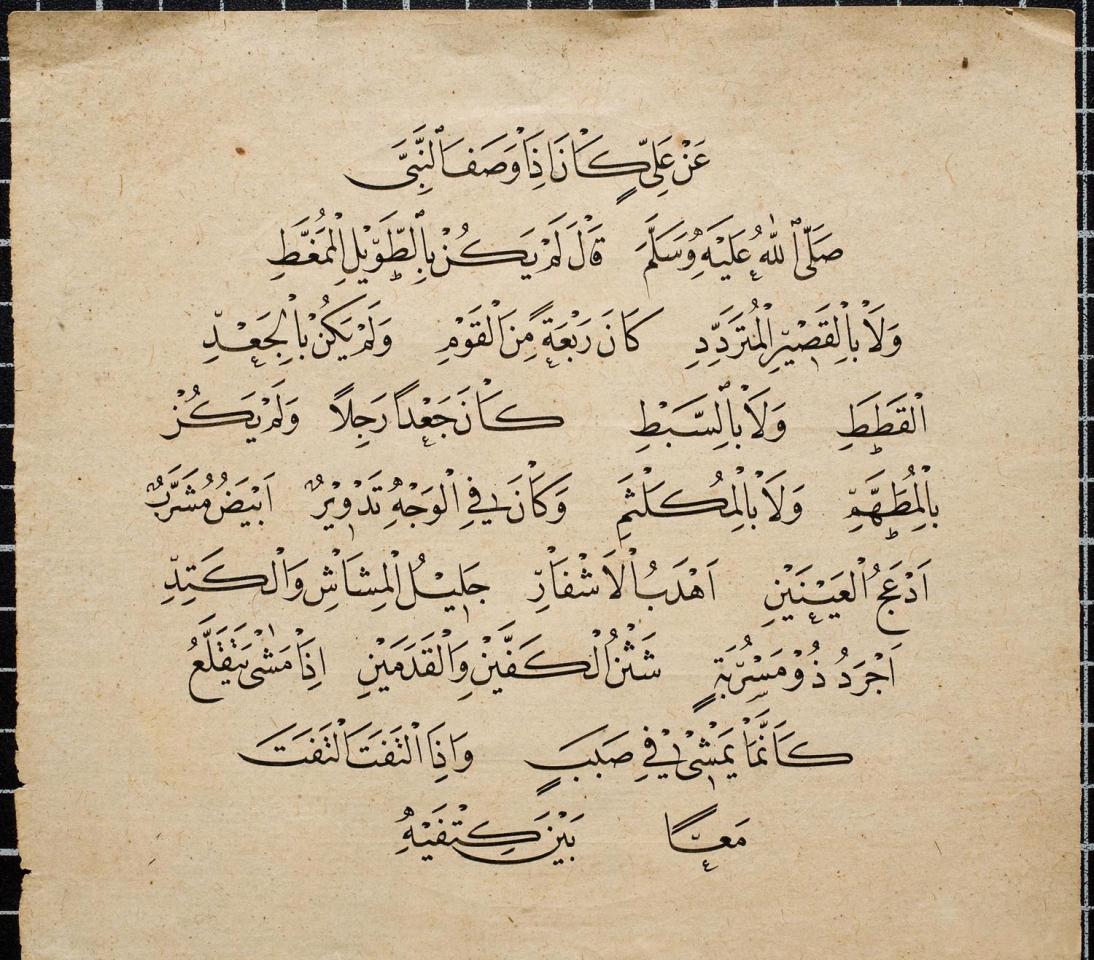 عَنْ عَلِيٍّ كَانَ اِذَا وَصَفَ النَّبِىَّ
صَلَّى اللّٰهُ عَلَيْهِ وَسَلَّمَ قَالَ لَمْ يَكُنْ بِالطَّوِيْلِ الْمُمَغَّطِ
وَلَا بِالْقَصِيْرِ الْمُتَرَدِّدِ كَانَ رَبْعَةً مِنَ الْقَوْمِ وَلَمْ يَكُنْ بِالْجَعْدِ
الْقَطَطِ وَلَا بِالسَّبْطِ كَانَ جَعْدًا رَجِلًا وَلَمْ يَكُنْ
بِالْمُطَهَّمِ وَلَا بِالْمُكَلْثَمِ وَكَانَ فِي الْوَجْهِ تَدْوِيْرٌ اَبْيَضُ مُشَرَّبٌ
اَدْعَجُ الْعَيْنَيْنِ اَهْدَبُ الْاَشْفَارِ جَلِيْلُ الْمُشَاشِ وَالْكَتِدِ
اَجْرَدُ ذُوْ مَسْرُبَةٍ شَثْنُ الْكَفَّيْنِ وَالْقَدَمَيْنِ اِذَا مَشٰى يَتَقَلَّعُ
كَاَنَّمَا يَمْشِىْ فِي صَبَبٍ وَاِذَا الْتَفَتَ الْتَفَتَ
مَعًا بَيْنَ كَتِفَيْهِ